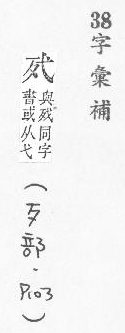 38字彙補
與同字
書或从弋
(歹部·P103)